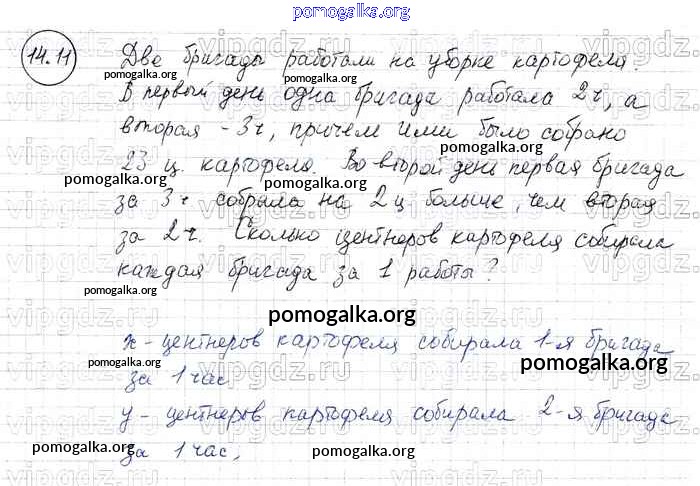 pomogalka.org
14.11 Две бригады работали на уборке картофеля.
pomogalka.org pomogalka.org
В первый день одна бригада работала 2ч, а
вторая - 3ч, причем ими было собрано
23 ц. картофеля. Во второй день первая бригада
pomogalka.org pomogalka.org
за 3ч собрала на 2ц больше, чем вторая
за 2ч. Сколько центнеров картофеля собирала
каждая бригада за 1 работы?
pomogalka.org
pomogalka.org
x - центнеров картофеля собирала 1-я бригада
pomogalka.org pomogalka.org
за 1 час
y - центнеров картофеля собирала 2-я бригада
pomogalka.org pomogalka.org
за 1 час,